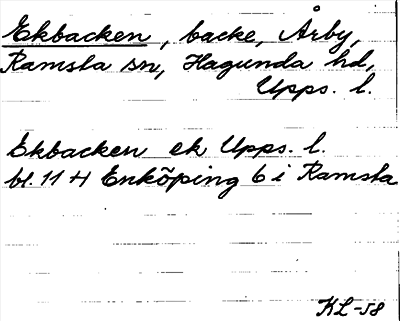 Ekbacken, backe, Årby,
Ramsta sn, Hagunda hd,
Upps. l.
Ekbacken ek Upps. l.
bl. 11 H Enköping 6 i Ramsta
KL-58